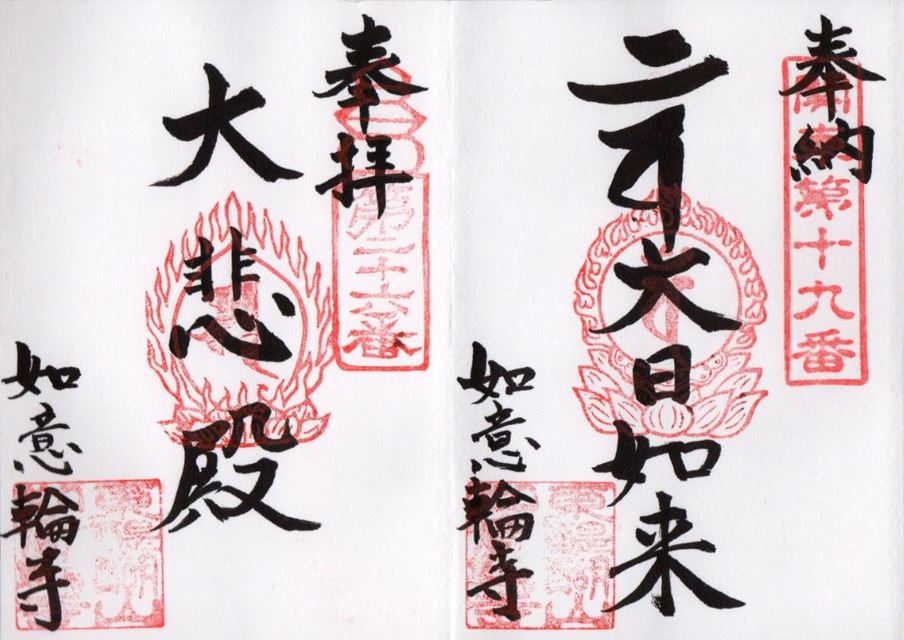 奉納
第十九番
大日如来
如意輪寺
奉拝
第二十六番
大悲殿
如意輪寺